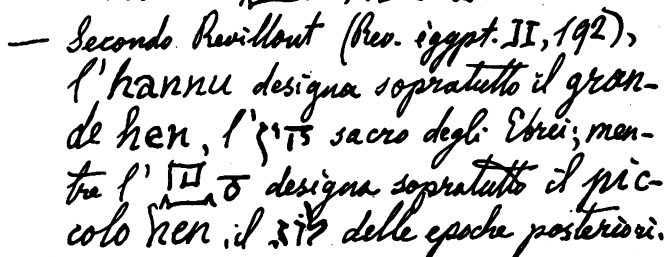 — Secondo Revillout (Rev. égypt. II, 192),
l'hannu designa sopratutto il gran-
de hen, l'הין sacro degli Ebrei; men-
tre l' designa sopratutto il pic-
colo hen, il delle epoche posteriori.